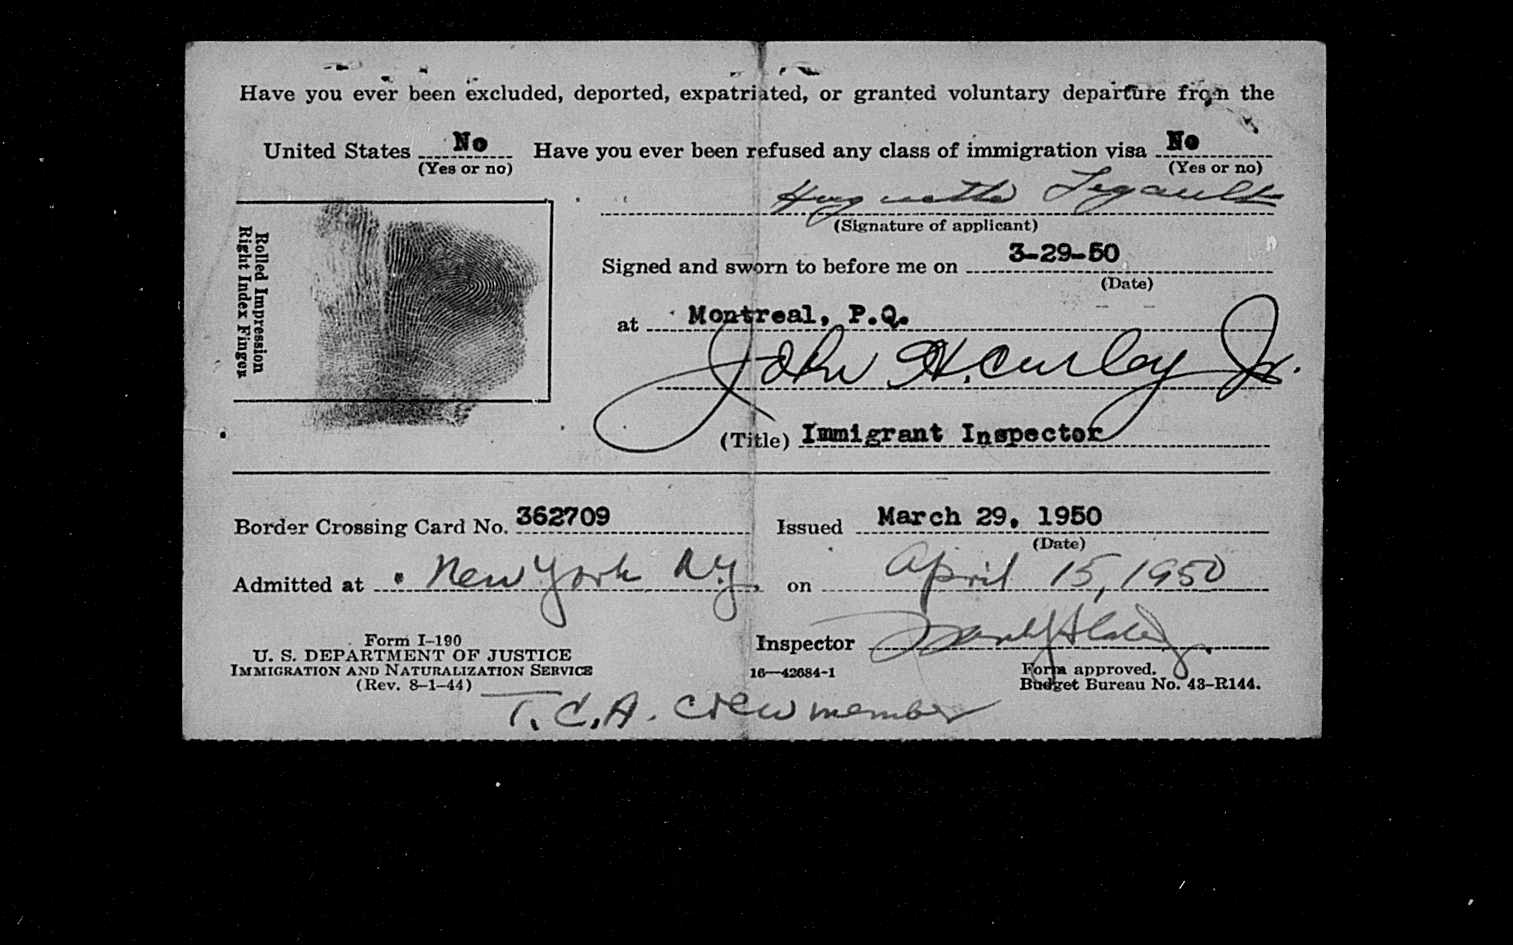 Have you ever been excluded, deported, expatriated, or granted voluntary departure from the
United States No Have you ever been refused any class of immigration visa No
(Yes or no) (Yes or no)
Huguette Legault
(Signature of applicant)
Signed and sworn to before me on 3-29-50
(Date)
at Montreal, P.Q.
John H. Curley Jr.
(Title) Immigrant Inspector
Rolled Impression
Right Index Finger
Border Crossing Card No. 362709 Issued March 29, 1950
(Date)
Admitted at New York N.Y. on April 15, 1950
Form I-190
U. S. DEPARTMENT OF JUSTICE
IMMIGRATION AND NATURALIZATION SERVICE
(Rev. 8-1-44)
Inspector
16—42684-1
Form approved.
Budget Bureau No. 43-R144.
T.C.A. crew member